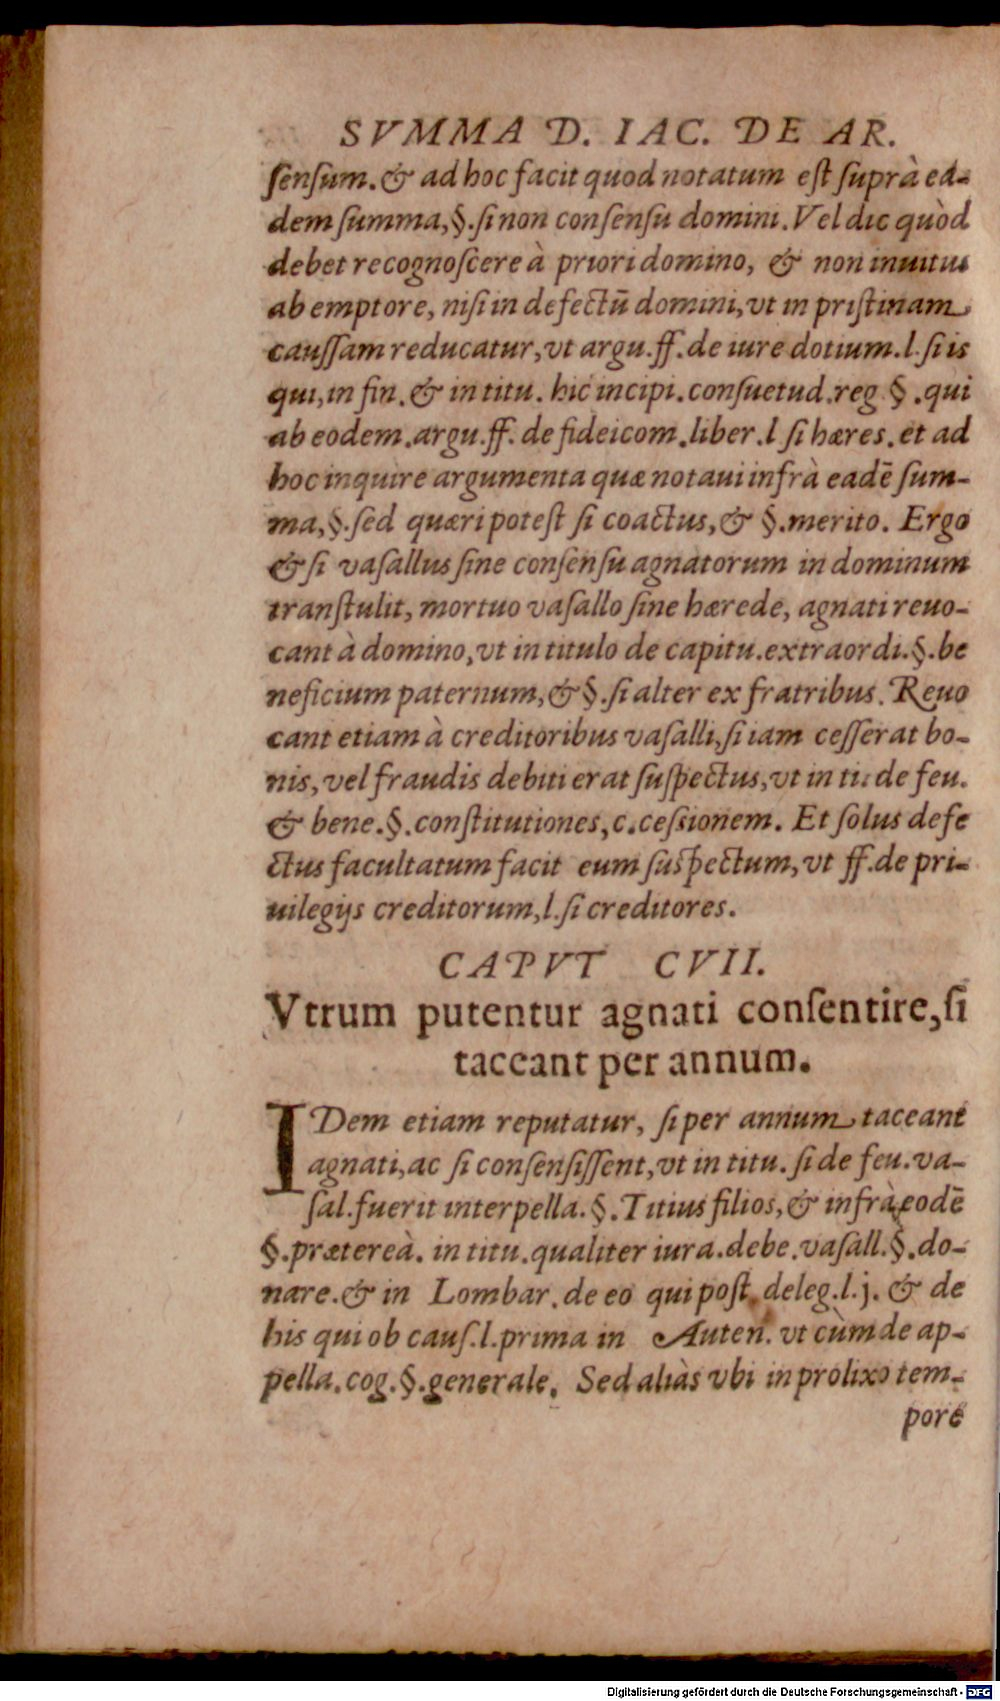 SVMMA D. IAC. DE AR.
ſenſum. & ad hoc facit quod notatum eſt ſuprà ea-
dem ſumma, §. ſi non conſenſu domini. Vel dic quòd
debet recognoſcere à priori domino, & non inuitus
ab emptore, niſi in defectũ domini, vt in priſtinam
cauſſam reducatur, vt argu. ff. de iure dotium. l. ſi is
qui, in fin. & in titu. hic incipi. conſuetud. reg §. qui
ab eodem. argu. ff. de fideicom. liber. l ſi hæres. et ad
hoc inquire argumenta quæ notaui infrà eadẽ ſum-
ma, §. ſed quæri poteſt ſi coactus, & §. merito. Ergo
& ſi vaſallus ſine conſenſu agnatorum in dominum
tranſtulit, mortuo vaſallo ſine hærede, agnati reuo-
cant à domino, vt in titulo de capitu. extraordi. §. be
neficium paternum, & §. ſi alter ex fratribus. Reuo
cant etiam à creditoribus vaſalli, ſi iam ceſſerat bo-
nis, vel fraudis debiti erat ſuſpectus, vt in ti. de feu.
& bene. §. conſtitutiones, c. ceſsionem. Et ſolus defe
ctus facultatum facit eum ſuſpectum, vt ff. de pri-
uilegijs creditorum, l. ſi creditores.
CAPVT CVII.
Vtrum putentur agnati conſentire, ſi
taceant per annum.
IDem etiam reputatur, ſi per annum taceant
agnati, ac ſi conſenſiſſent, vt in titu. ſi de feu. va-
ſal. fuerit interpella. §. Titius filios, & infrà eodẽ
§. prætereà. in titu. qualiter iura. debe. vaſall. §. do-
nare. & in Lombar. de eo qui poſt deleg. l. j. & de
his qui ob cauſ. l. prima in Auten. vt cùm de ap-
pella. cog. §. generale. Sed aliàs vbi in prolixo tem-
pore
Digitalisierung gefördert durch die Deutsche Forschungsgemeinschaft - DFG